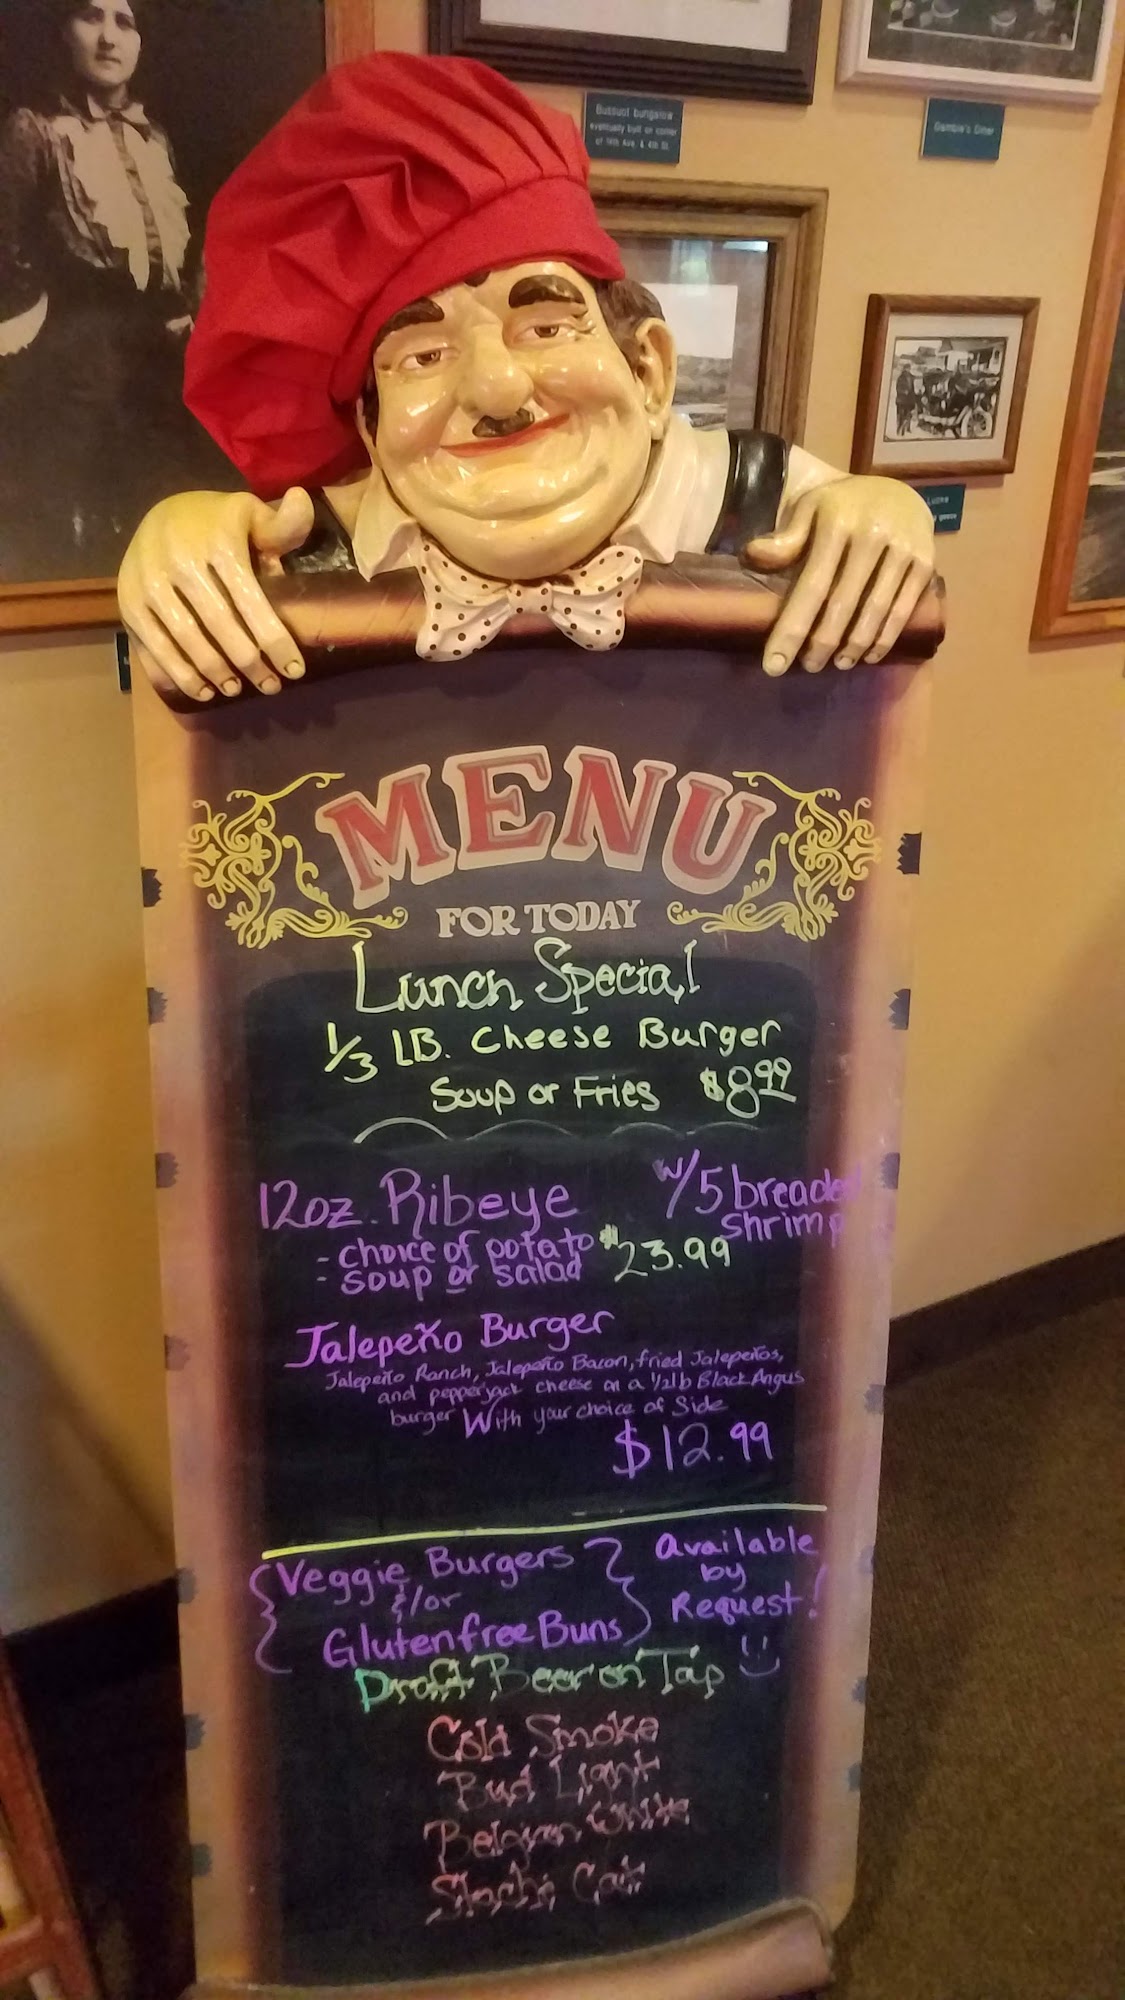 Bussuot bungalow
eventually built on corner
of 14th Ave. & 4th St.
Gamble's Diner
Lucke
MENU
FOR TODAY
Lunch Special
1/3 LB. Cheese Burger
Soup or Fries $8.99
12oz. Ribeye w/5 breaded
shrimp
- choice of potato $23.99
- soup or salad
Jalepeño Burger
Jalepeño Ranch, Jalepeño Bacon, fried Jalepeños,
and pepperjack cheese on a 1/2 lb Black Angus
burger With your choice of Side
$12.99
Veggie Burgers Available
&/or by
Gluten free Buns Request!
Draft Beer on Tap
Cold Smoke
Bud Light
Belgian White